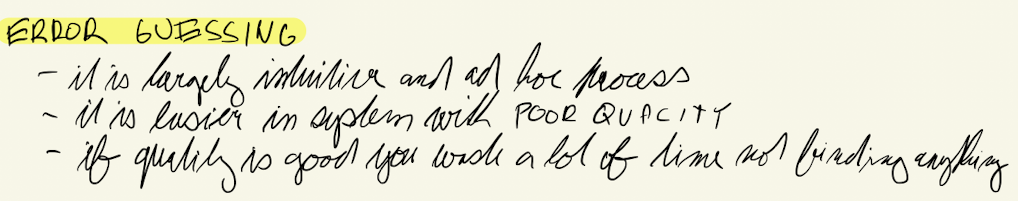 ERROR GUESSING
- it is largely intuitive and ad hoc process
- it is easier in system with POOR QUALITY
- if quality is good you waste a lot of time not finding anything